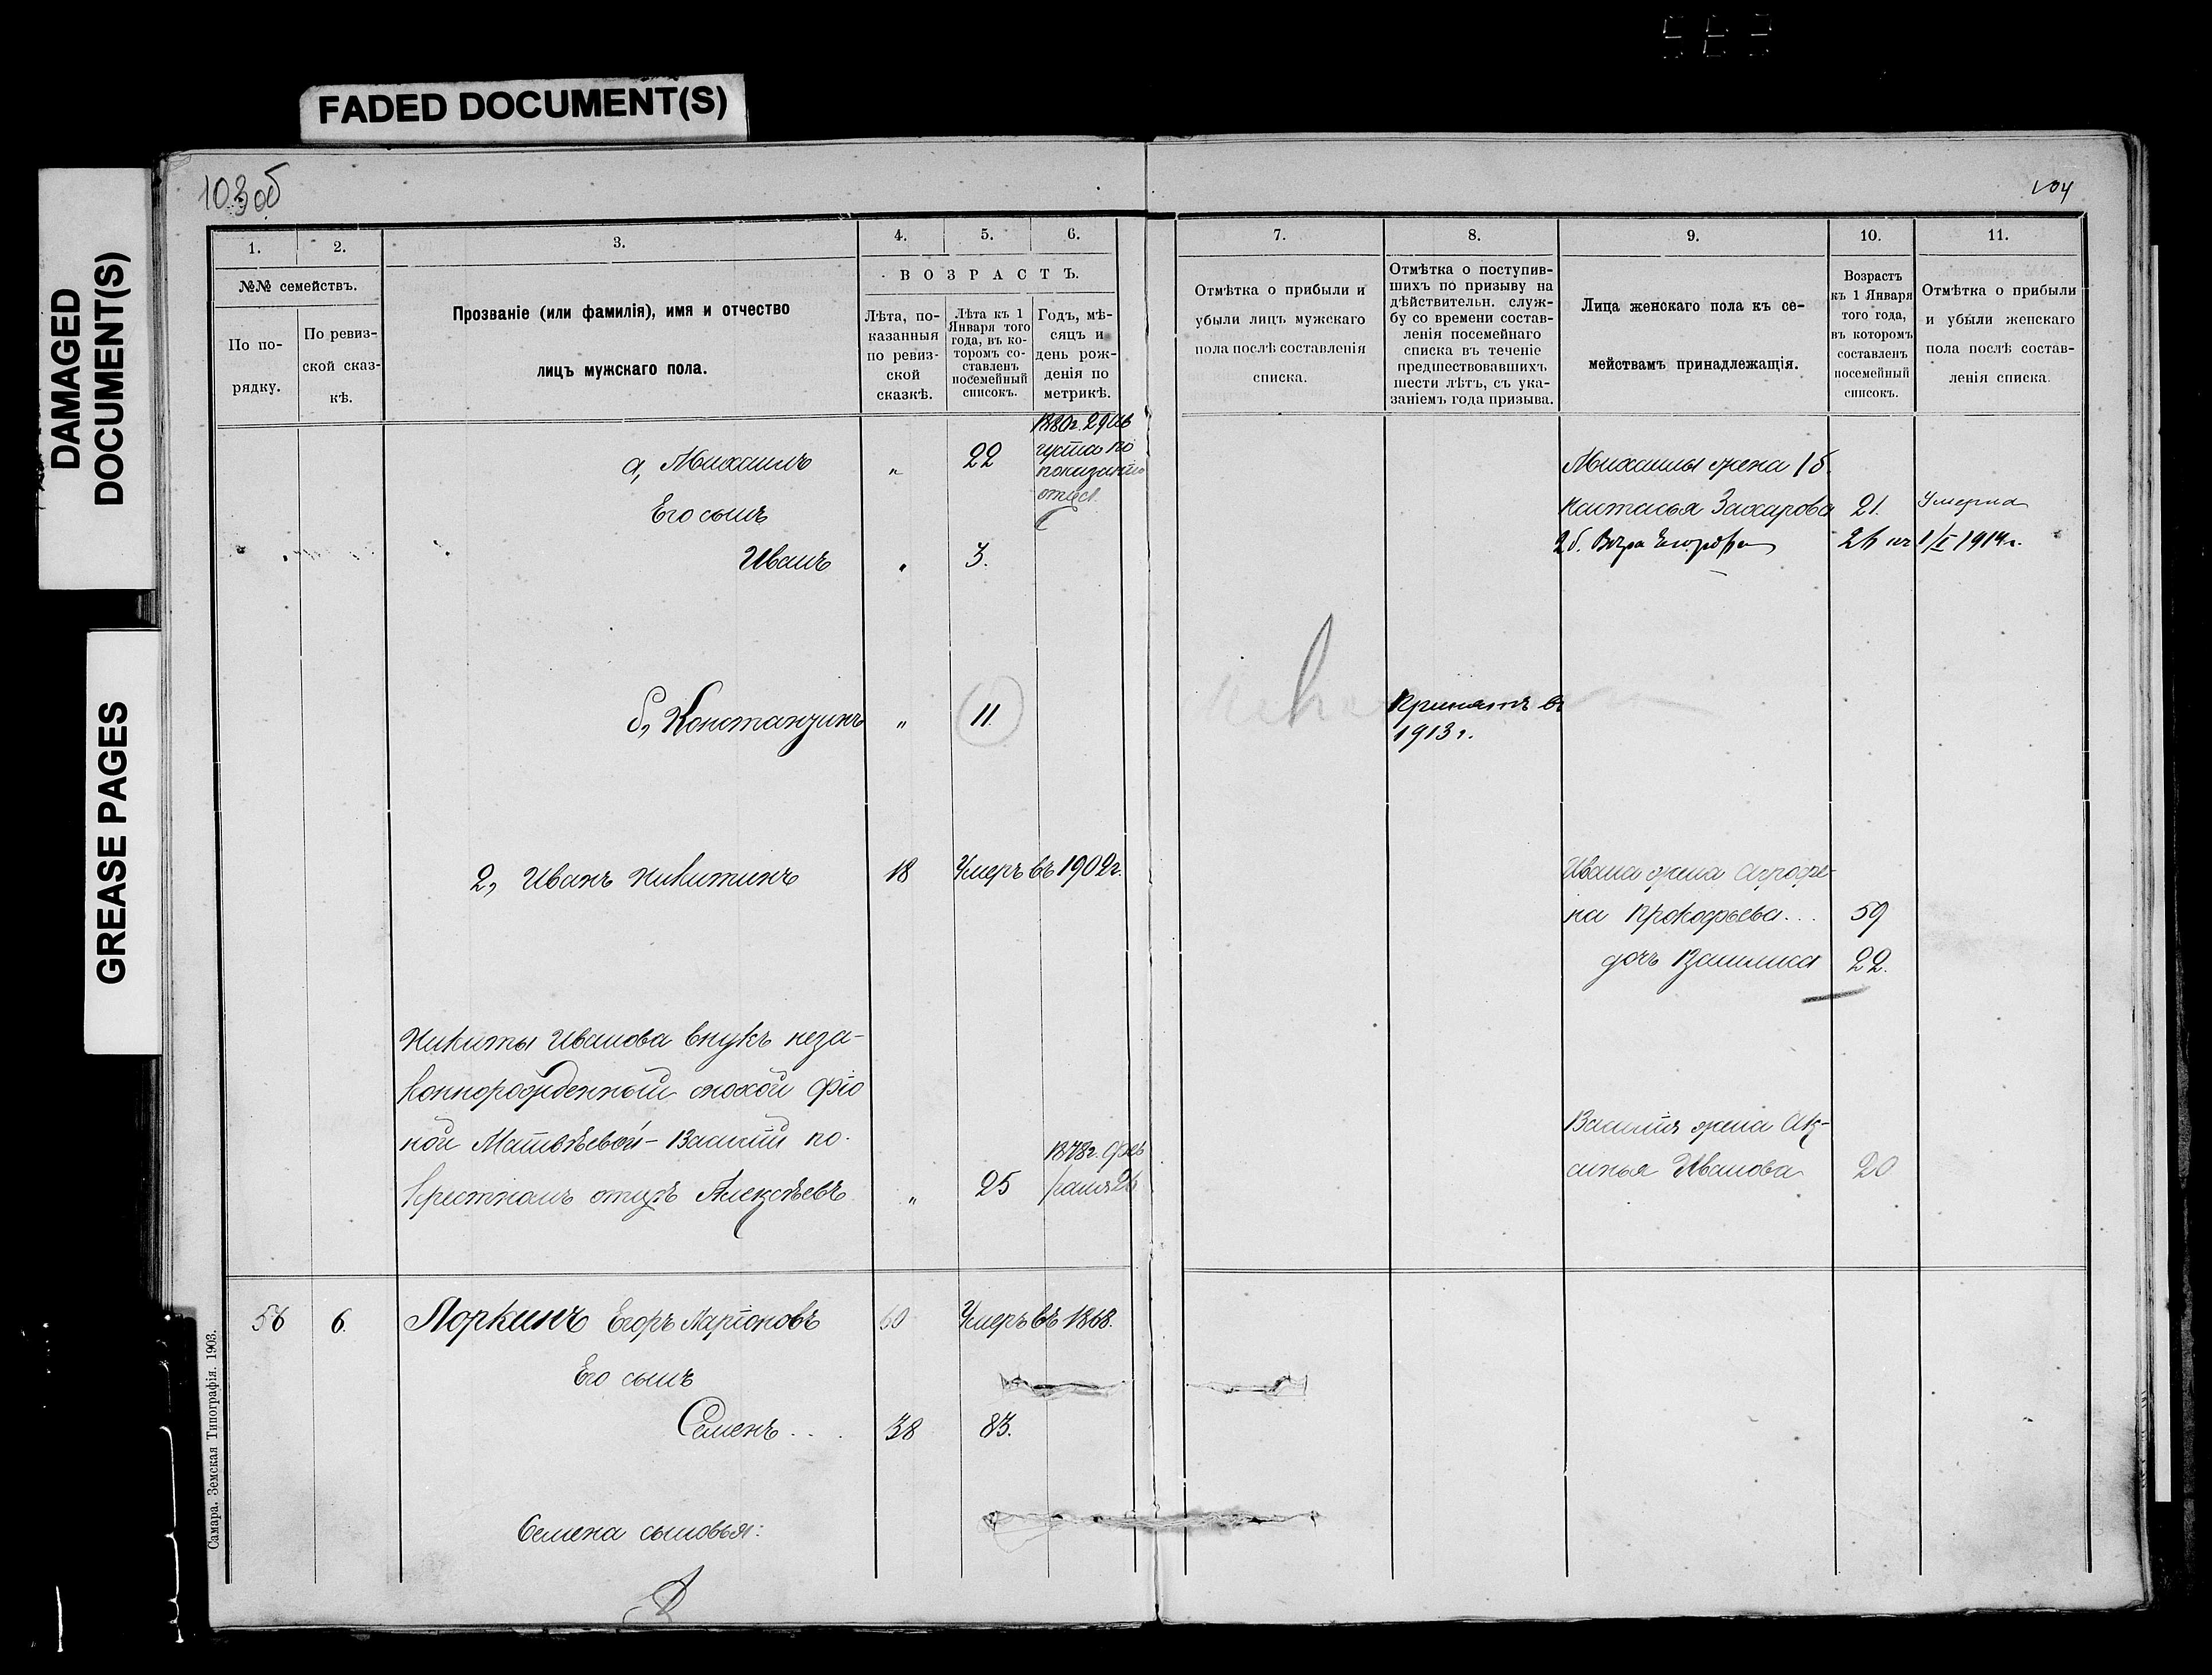 FADED DOCUMENT(S)
DAMAGED
DOCUMENT(S)
GREASE PAGES
103об
104
1.
2.
3.
4.
5.
6.
7.
8.
9.
10.
11.
№№ семействъ.
По по-
рядку.
По ревиз-
ской сказ-
кѣ.
Прозваніе (или фамилія), имя и отчество
лицъ мужскаго пола.
ВОЗРАСТЪ.
Лѣта, по-
казанныя
по ревиз-
ской
сказкѣ.
Лѣта къ 1
Января того
года, въ ко-
торомъ со-
ставленъ
посемейный
списокъ.
Годъ, мѣ-
сяцъ и
день рож-
денія по
метрикѣ.
Отмѣтка о прибыли и
убыли лицъ мужскаго
пола послѣ составленія
списка.
Отмѣтка о поступив-
шихъ по призыву на
дѣйствительн. служ-
бу со времени состав-
ленія посемейнаго
списка въ теченіе
предшествовавшихъ
шести лѣтъ, съ ука-
заніемъ года призыва.
Лица женскаго пола къ се-
мействамъ принадлежащія.
Возрастъ
къ 1 Января
того года,
въ которомъ
составленъ
посемейный
списокъ.
Отмѣтка о прибыли
и убыли женскаго
пола послѣ состав-
ленія списка.
а, Михаилъ
"
22
1880г. 29 Ав
густа по
показанію
отца
Его сынъ
Иванъ
"
3.
Михаилы жена 1 б.
Настасья Захарова
21.
Умерла
2 б. Вѣра Егорова
26 къ
1/I 1914г.
б, Константинъ
"
11
Принятъ въ
1913 г.
2, Иванъ Никитинъ
18
Умеръ въ 1902г.
Ивана жена Агрофе-
на Прокофьева...
59
дочь Василиса
22.
Никиты Иванова внукъ неза-
коннорожденный снохой Фіо
ной Матвѣевой - Василій по
крестномъ отцѣ Алексѣевъ
"
25
1878г. Фев
раля 26
Василія жена Ак-
синья Иванова
20
56
6.
Лоркинъ Егоръ Ларіоновъ
60
Умеръ въ 1868.
Его сынъ
Семенъ...
38
83.
Семена сыновья:
Самара. Земская Типографія. 1903.